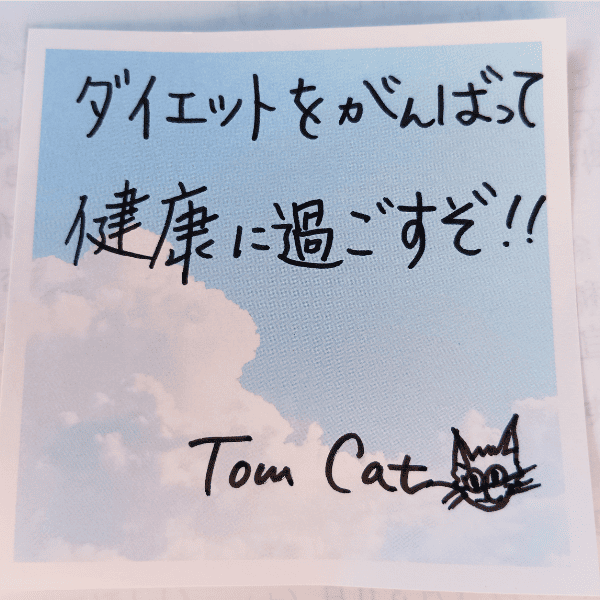 ダイエットをがんばって
健康に過ごすぞ!!
Tom Cat